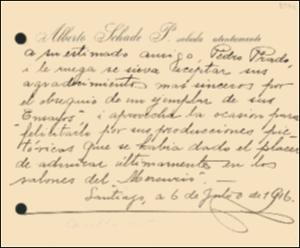 Alberto Schade P. saluda atentamente
a su estimado amigo, Pedro Prado,
i le ruega se sirva aceptar sus
agradecimientos mas sinceros por
el obsequio de un ejemplar de sus
Ensayos, i aprovecha la ocasion para
felicitarlo por sus producciones pic-
tóricas que se habia dado el placer
de admirar ultimamente en los
salones del "Mercurio".—
Santiago, a 6 de de 1916.